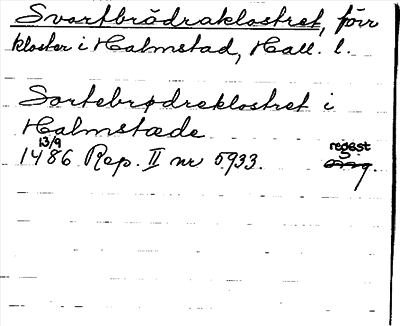 Svartbrödraklostret, förr
kloster i Halmstad, Hall. l.
Sortebrødreklostret i
Halmstæde
13/9 regest
1486 Rep. II nr 5933. orig.